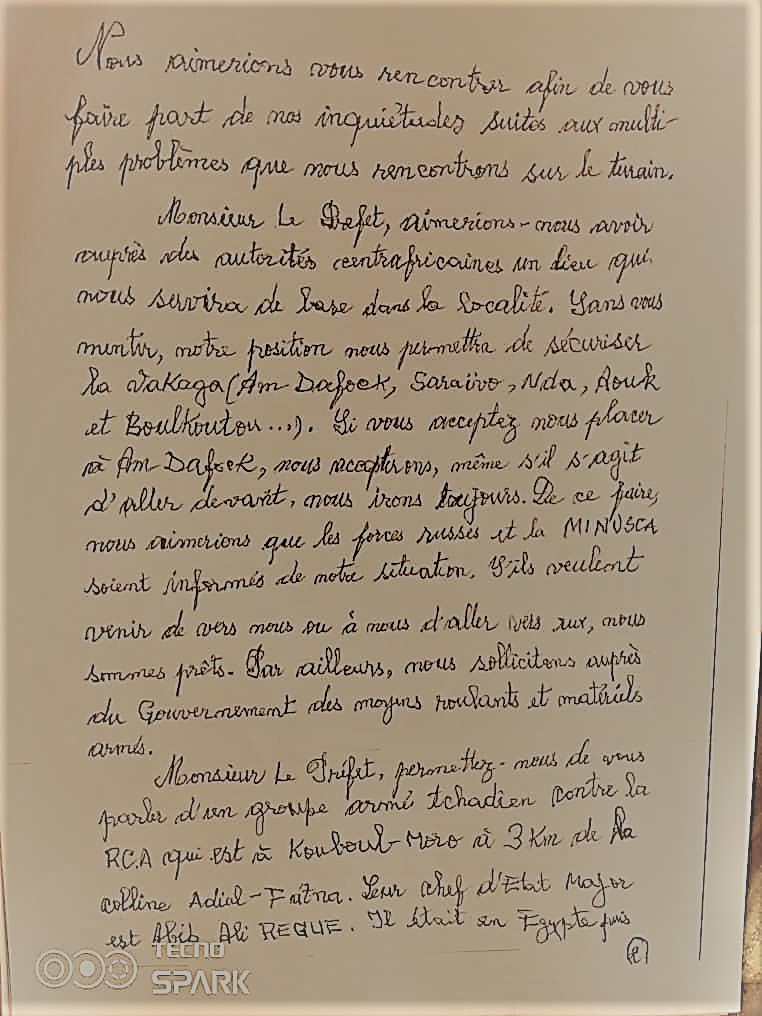 Nous aimerions vous rencontrer afin de vous
faire part de nos inquiétudes suites aux multi-
ples problèmes que nous rencontrons sur le terrain.
Monsieur Le Prefet, aimerions-nous avoir
auprès des autorités centrafricaines un lieu qui
nous servira de base dans la localité. Sans vous
mentir, notre position nous permettra de sécuriser
la Vakaga (Am Dafock, Saraïvo, Nda, Aouk
et Boulkoutou...). Si vous acceptez nous placer
à Am Dafock, nous accepterons, même s'il s'agit
d'aller devant, nous irons toujours. De ce faire,
nous aimerions que les forces russes et la MINUSCA
soient informés de notre situation. S'ils veulent
venir de vers nous ou à nous d'aller vers eux, nous
sommes prêts. Par ailleurs, nous sollicitons auprès
du Gouvernement des moyens roulants et matériels
armés.
Monsieur Le Préfet, permettez-nous de vous
parler d'un groupe armé tchadien contre la
RCA qui est à Kouboub-Moro à 3 Km de la
colline Adiul-Futna. Leur chef d'Etat Major
est Abib Ali REQUE. Il était en Egypte puis
TECNO
SPARK